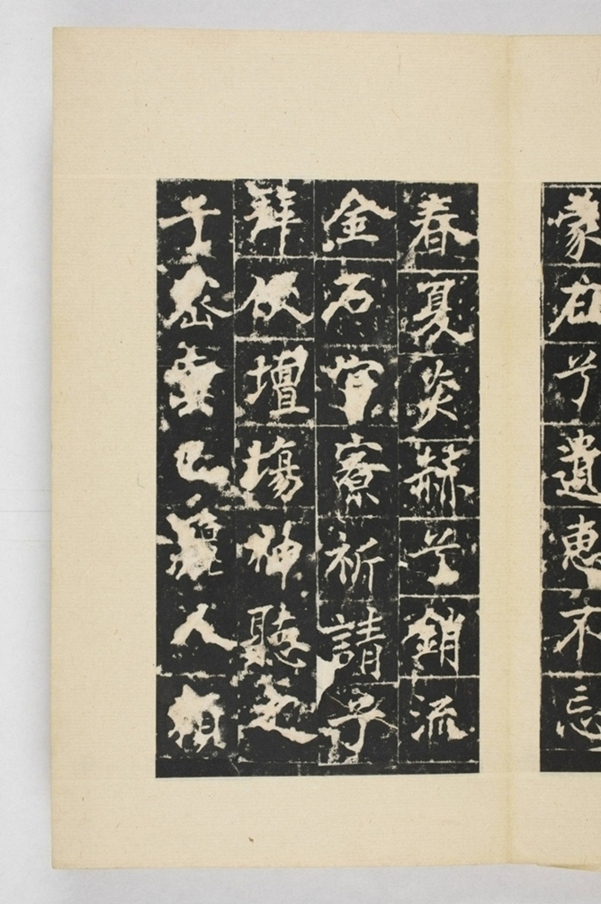 蒙 兮遺惠不忘
春夏炎赫兮銷流
金石 寮祈請兮
拜伏壇場神聽之
兮 雲 人賴